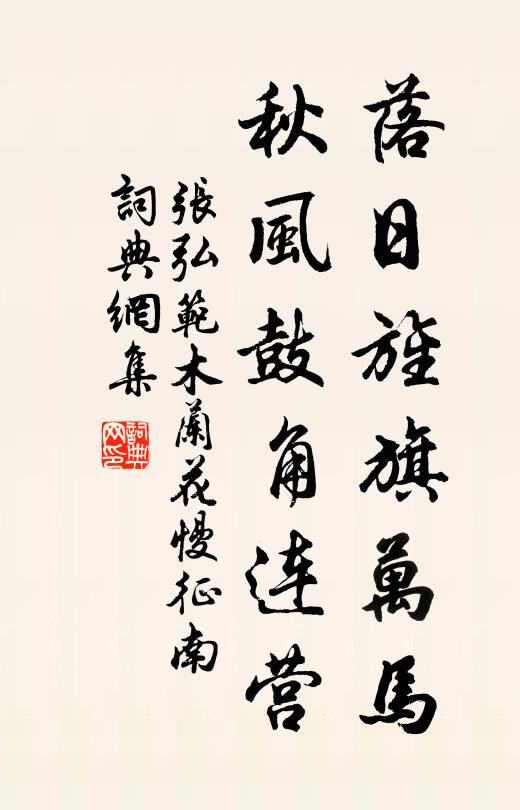 落日旌旗萬馬
秋風鼓角連营
張弘範木蘭花慢征南
詞典網集
詞典网印